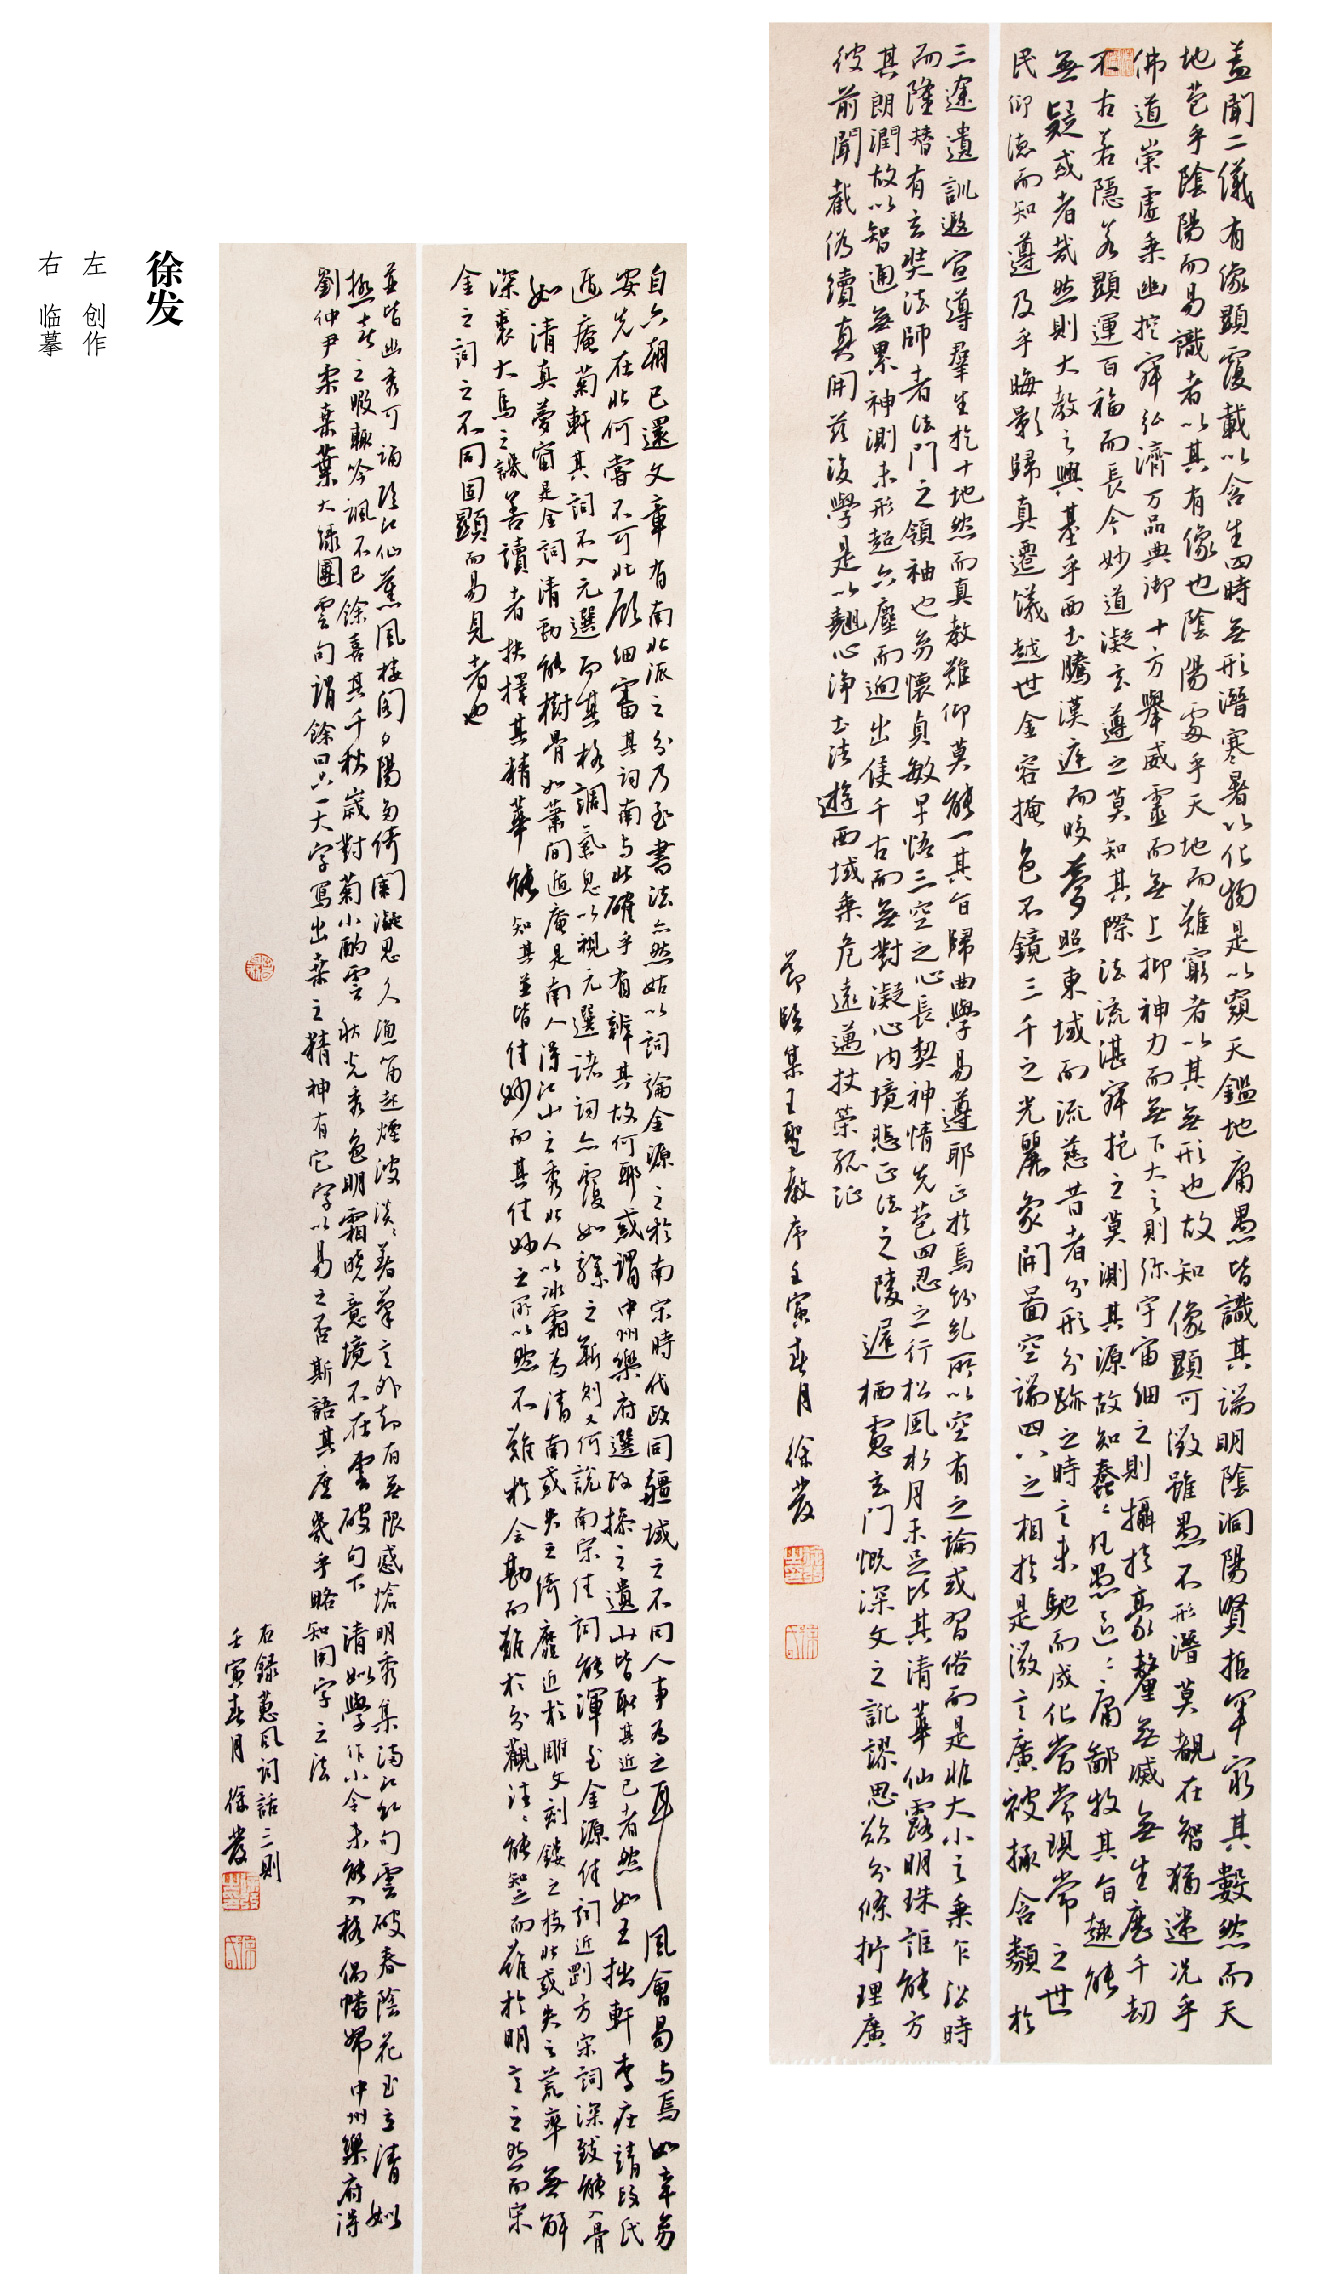 徐发
左 创作
右 临摹
蓋聞二儀有像顯覆載以含生四時無形潛寒暑以化物是以窺天鑑地庸愚皆識其端明陰洞陽賢哲罕窮其數然而天
地苞乎陰陽而易識者以其有像也陰陽處乎天地而難窮者以其無形也故知像顯可徵雖愚不形潛莫覩在智猶迷况乎
佛道崇虛乘幽控寂弘濟万品典御十方舉威靈而無上抑神力而無下大之則弥宇宙細之則攝於豪釐無滅無生歷千劫
不古若隱若顯運百福而長今妙道凝玄遵之莫知其際法流湛寂挹之莫測其源故知蠢〻凡愚區〻庸鄙投其旨趣能
無疑或者哉然則大教之興基乎西土騰漢庭而皎夢照東域而流慈昔者分形分跡之時言未馳而成化當常現常之世
民仰德而知遵及乎晦影歸真遷儀越世金容掩色不鏡三千之光麗象開圖空端四八之相於是微言廣被拯含類於
三途遺訓遐宣導羣生於十地然而真教難仰莫能一其旨歸曲學易遵耶正於焉紛糺所以空有之論或習俗而是非大小之乘乍沿時
而隆替有玄奘法師者法門之領袖也幼懷貞敏早悟三空之心長契神情先苞四忍之行松風水月未足比其清華仙露明珠詎能方
其朗潤故以智通無累神測未形超六塵而迥出隻千古而無對凝心內境悲正法之陵遲栖慮玄門慨深文之訛謬思欲分條析理廣
彼前聞截偽續真開茲後學是以翹心淨土法遊西域乘危遠邁杖策孤征
節臨集王聖教序壬寅春月 徐發
自六朝已還文章有南北派之分乃至書法亦然姑以詞論金源之於南宋時代政同疆域之不同人事為之耳風會曷與焉如辛幼
安先在北何嘗不可北顧細審其詞南与北確乎有辨其故何耶或謂中州樂府選政操之遺山皆取其近己者然如王拙軒李莊靖段氏
遯庵菊軒其詞不入元選而其格調氣息以視元選諸詞亦覆如驂之靳則又何說南宋佳詞能渾至金源佳詞近剛方宋詞深致能入骨
如清真夢窗是金詞清勁能樹骨如蕭閒遯庵是南人得江山之秀北人以冰霜為清南或失之綺靡近於雕文刻鏤之技北或失之荒率無解
深裘大馬之譏善讀者抉擇其精華能知其並皆佳妙而其佳妙之所以然不難於合勘而難於分觀往〻能知之而難於明言之然而宋
金之詞之不同固顯而易見者也
並皆幽秀可誦臨江仙薰風樓閣夕陽多倚闌凝思久漁笛起煙波淡〻著筆言外却有無限感愴明秀集滿江紅句雲破春陰花玉立清姒
極喜之暇輒吟諷不已餘喜其千秋歲對菊小酌雲秋光秀色明霜曉意境不在雲破句下清姒學作小令未能入格偶幡帰中州樂府得
劉仲尹柔桑葉大綠團雲句謂餘曰只一大字寫出桑之精神有它字以易之否斯語其庶幾乎略知用字之法
右錄蕙風詞話三則
壬寅春月 徐發